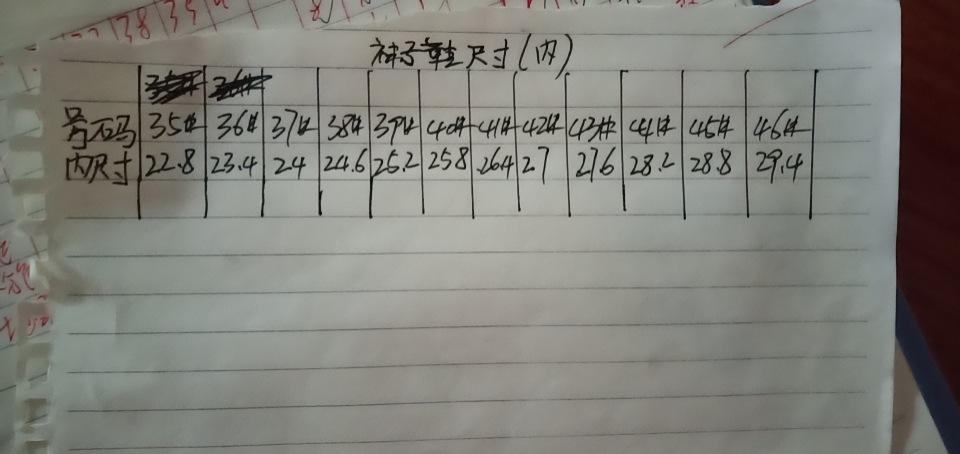 袜子鞋尺寸(内)
号码 35# 36# 37# 38# 39# 40# 41# 42# 43# 44# 45# 46#
内尺寸 22.8 23.4 24 24.6 25.2 258 26.4 27 276 28.2 28.8 29.4
38 39